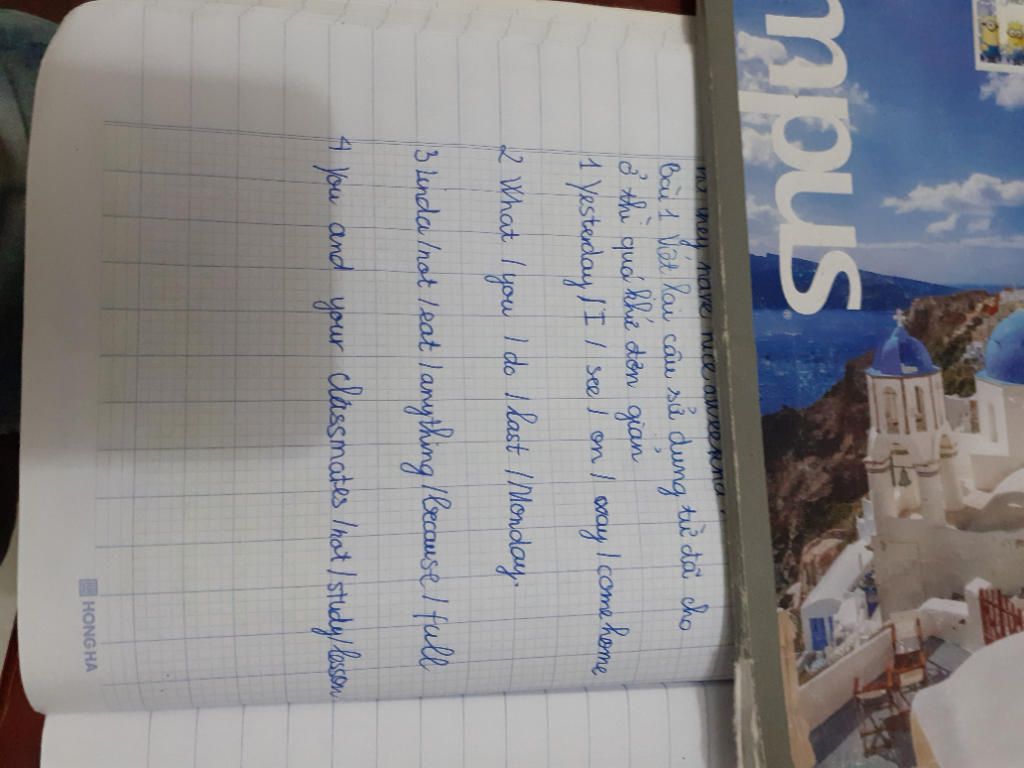 Bài 1 Viết lại câu sử dụng từ đã cho
ở thì quá khứ đơn giản
1 Yesterday / I / see / on / way / come home
2 What / you / do / last / Monday.
3 Linda / not / eat / anything / because / full
4 You and your classmates / not / study / lesson
HONG HA
mpus